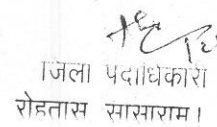 जिला पदाधिकारी
रोहतास सासाराम।